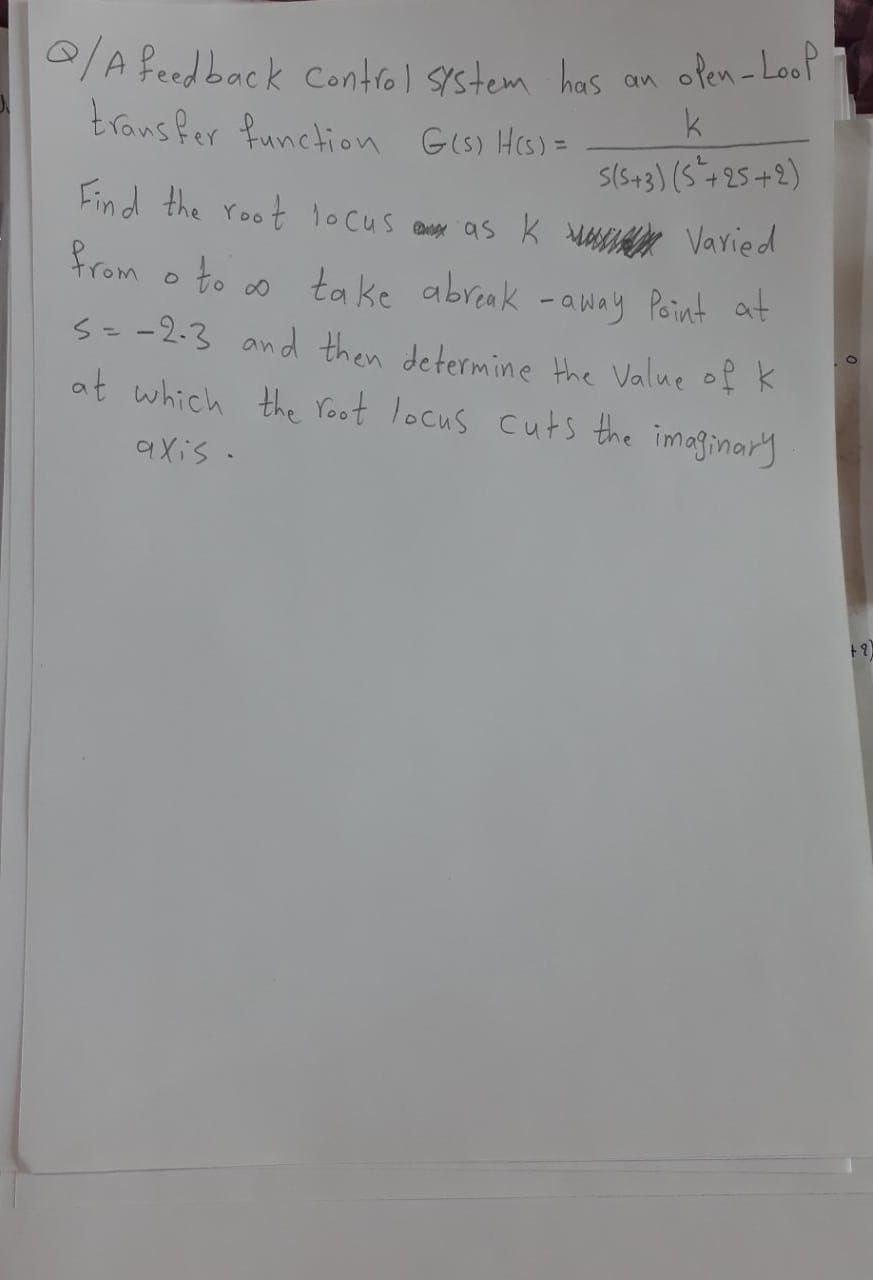 Q/ A feedback control system has an open-Loop
transfer function G(s) H(s) = k / s(s+3)(s²+2s+2)
Find the root locus as k Varied
from 0 to ∞ take abreak-away Point at
s = -2.3 and then determine the Value of k
at which the root locus cuts the imaginary
axis.